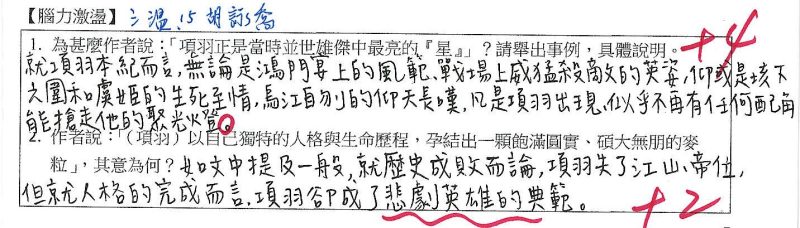 【腦力激盪】 三溫.15 胡詠喬
1. 為甚麼作者說：「項羽正是當時並世雄傑中最亮的『星』」？請舉出事例，具體說明。 +4
就項羽本紀而言，無論是鴻門宴上的風範、戰場上威猛殺敵的英姿，抑或是垓下
之圍和虞姬的生死至情，烏江自刎的仰天長嘆，凡是項羽出現，似乎不再有任何配角
能搶走他的聚光燈。
2. 作者說：「（項羽）以自己獨特的人格與生命歷程，孕結出一顆飽滿圓實、碩大無朋的麥
粒」，其意為何？ 如文中提及一般，就歷史成敗而論，項羽失了江山、帝位，
但就人格的完成而言，項羽卻成了悲劇英雄的典範。 +2